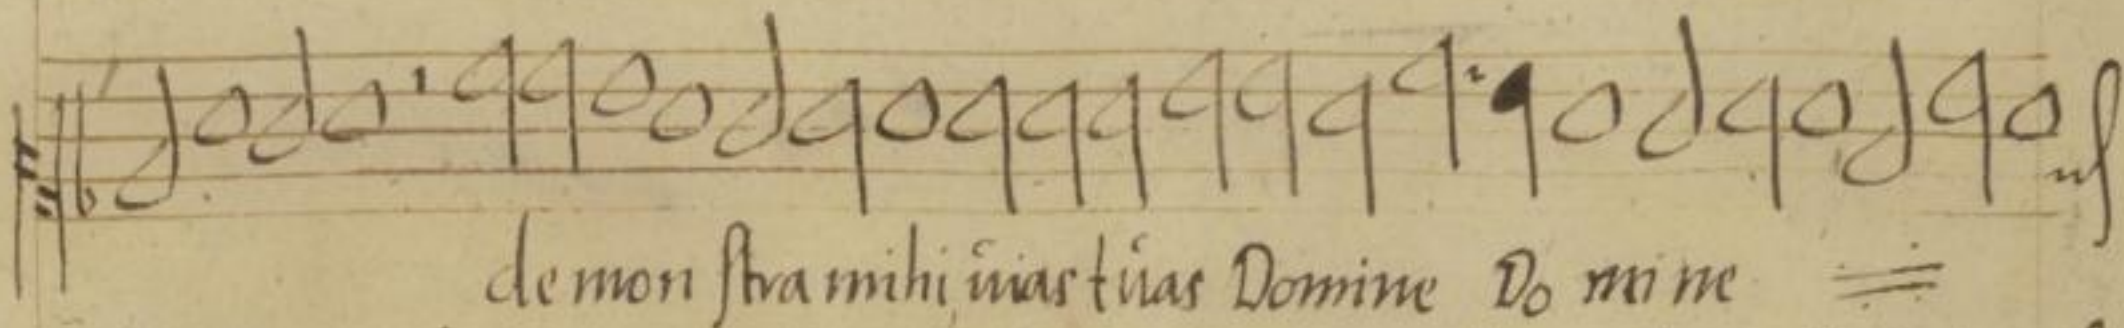 demonstra mihi, vias tuas Domine Domine